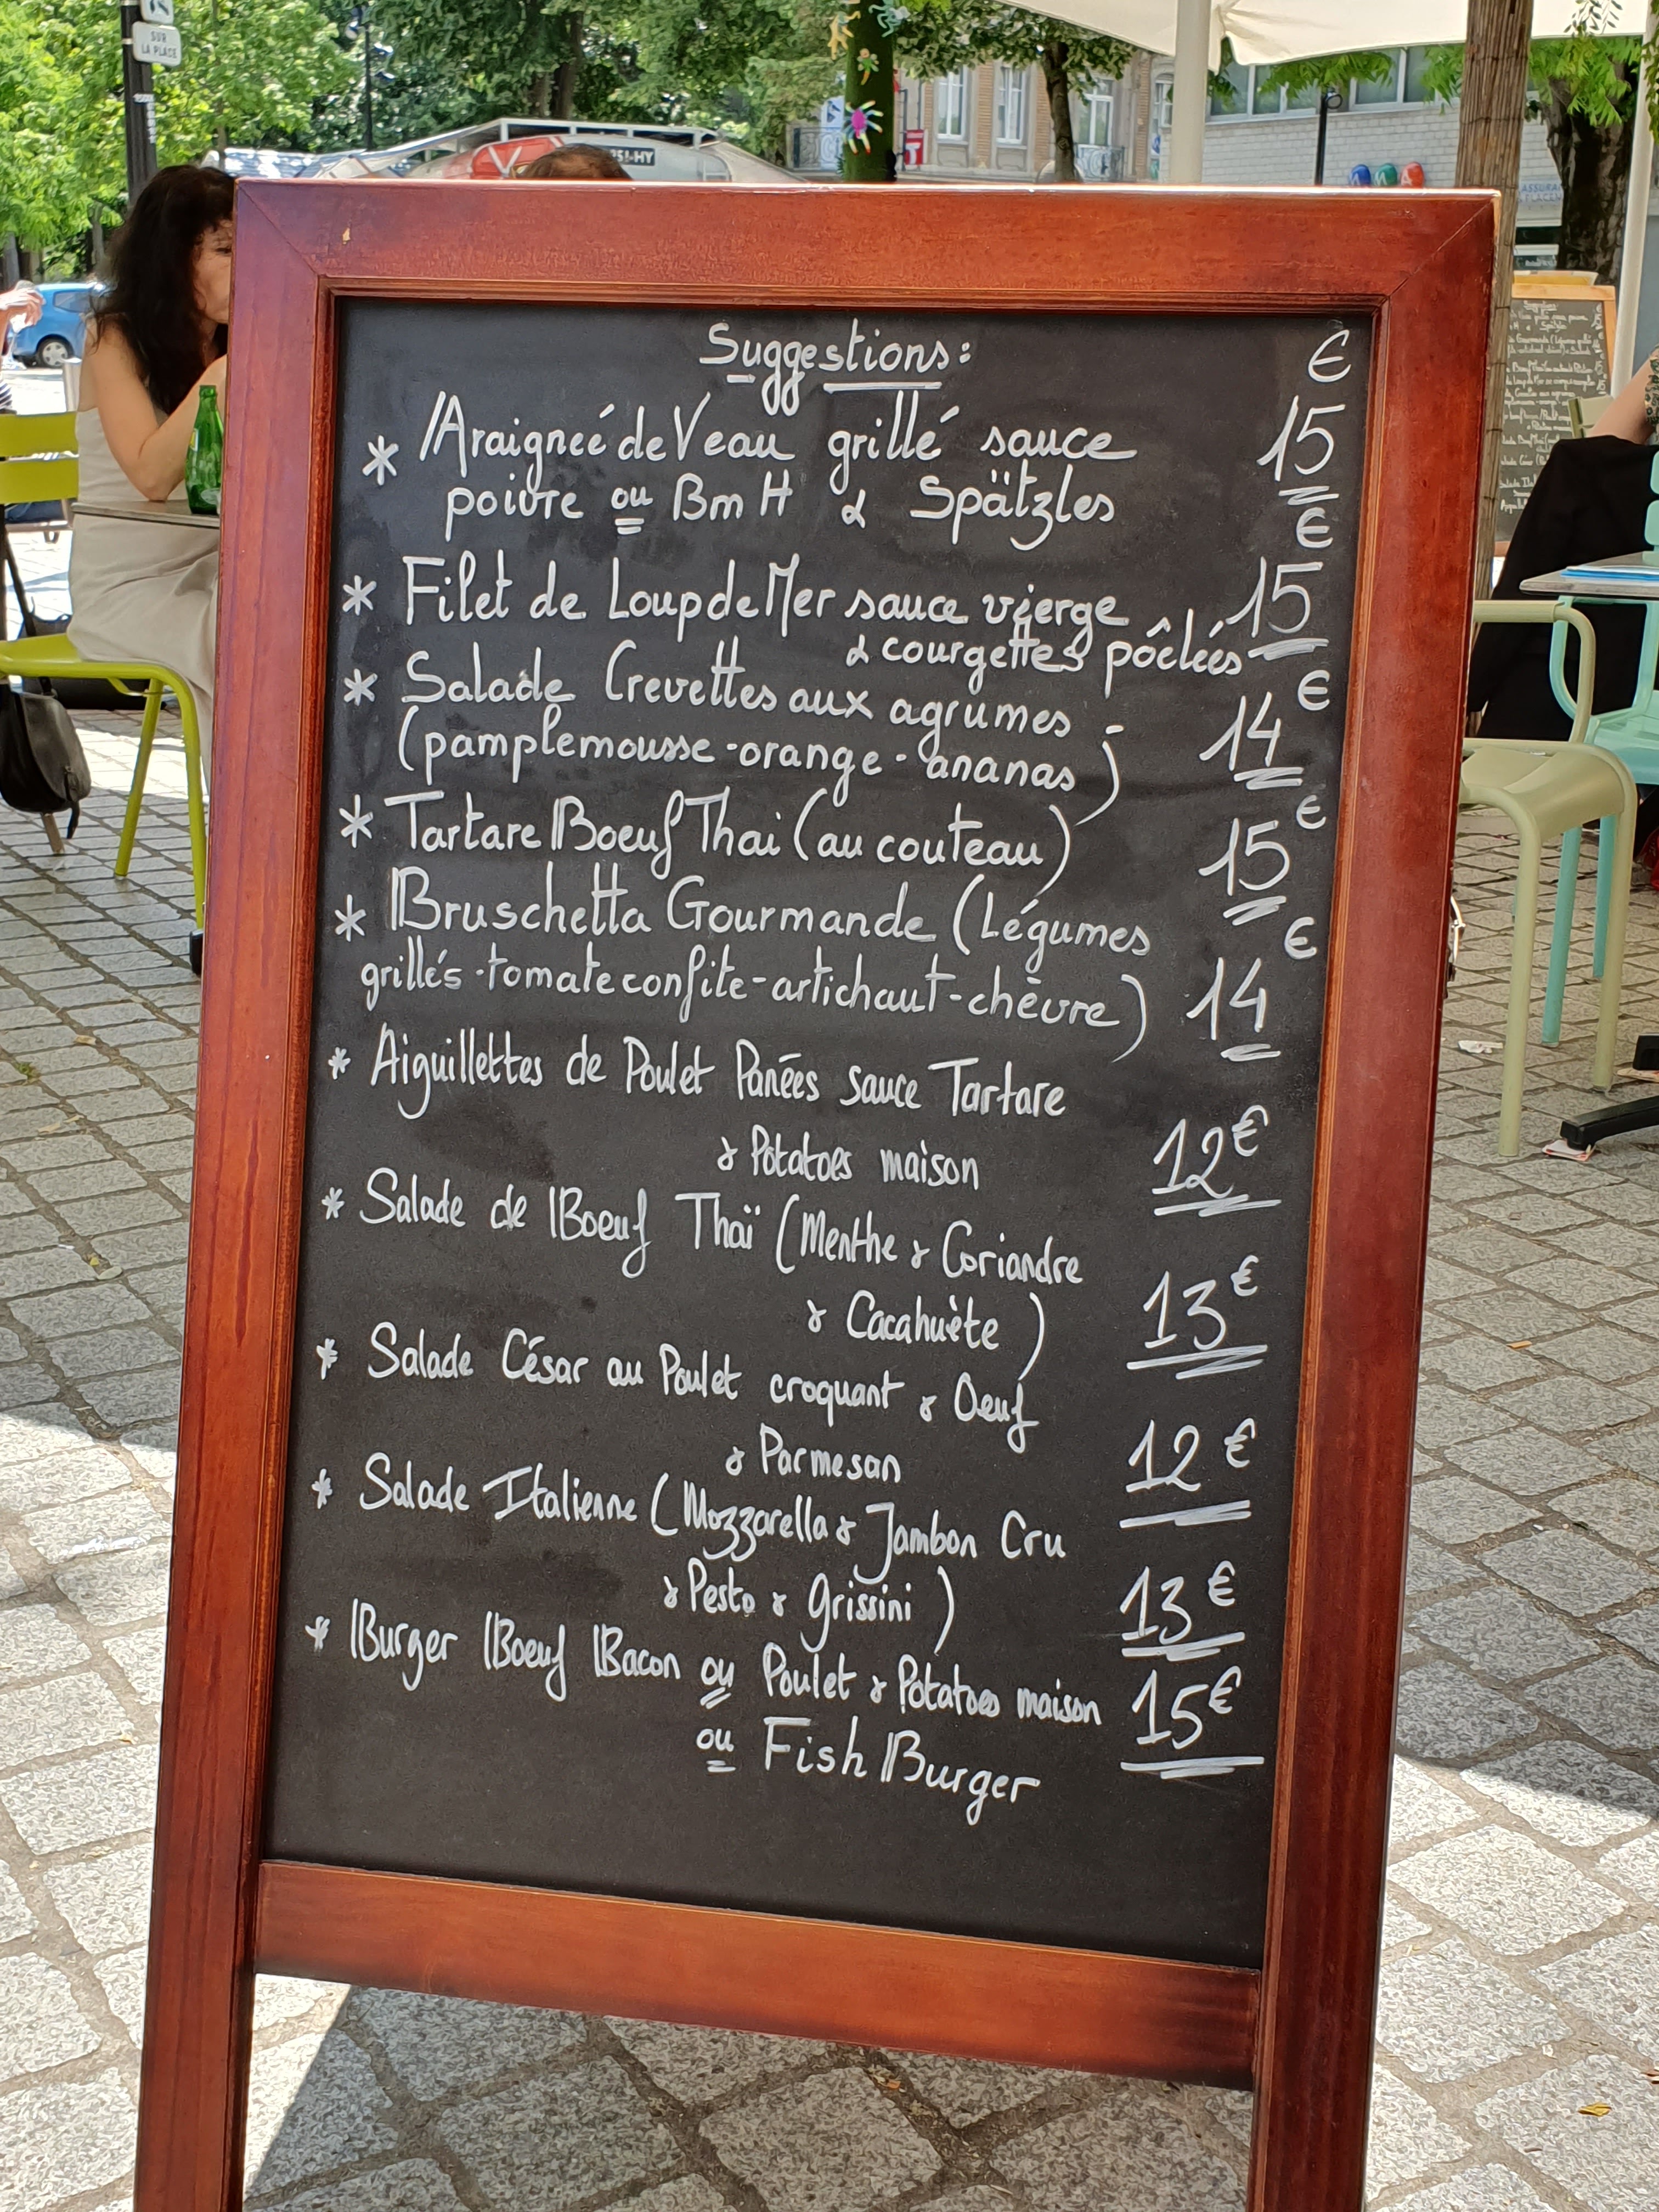 SUR
LA PLACE
251-HY
ASSURAN
Suggestions: €
* Araigneé de Veau grillé sauce 15
poivre ou BmH & Spätzles €
* Filet de Loup de Mer sauce vierge 15
& courgettes pôêlées
* Salade Crevettes aux agrumes - 14 €
(pamplemousse - orange - ananas)
* Tartare Boeuf Thai (au couteau) 15 €
* Bruschetta Gourmande (Légumes €
grillés - tomate confite - artichaut - chèvre) 14
* Aiguillettes de Poulet Panées sauce Tartare
& Potatoes maison 12€
* Salade de Boeuf Thaï (Menthe & Coriandre
& Cacahuète) 13€
* Salade César au Poulet croquant & Oeuf
& Parmesan 12€
* Salade Italienne (Mozzarella & Jambon Cru
& Pesto & Grissini) 13€
* Burger Boeuf Bacon ou Poulet & Potatoes maison 15€
ou Fish Burger